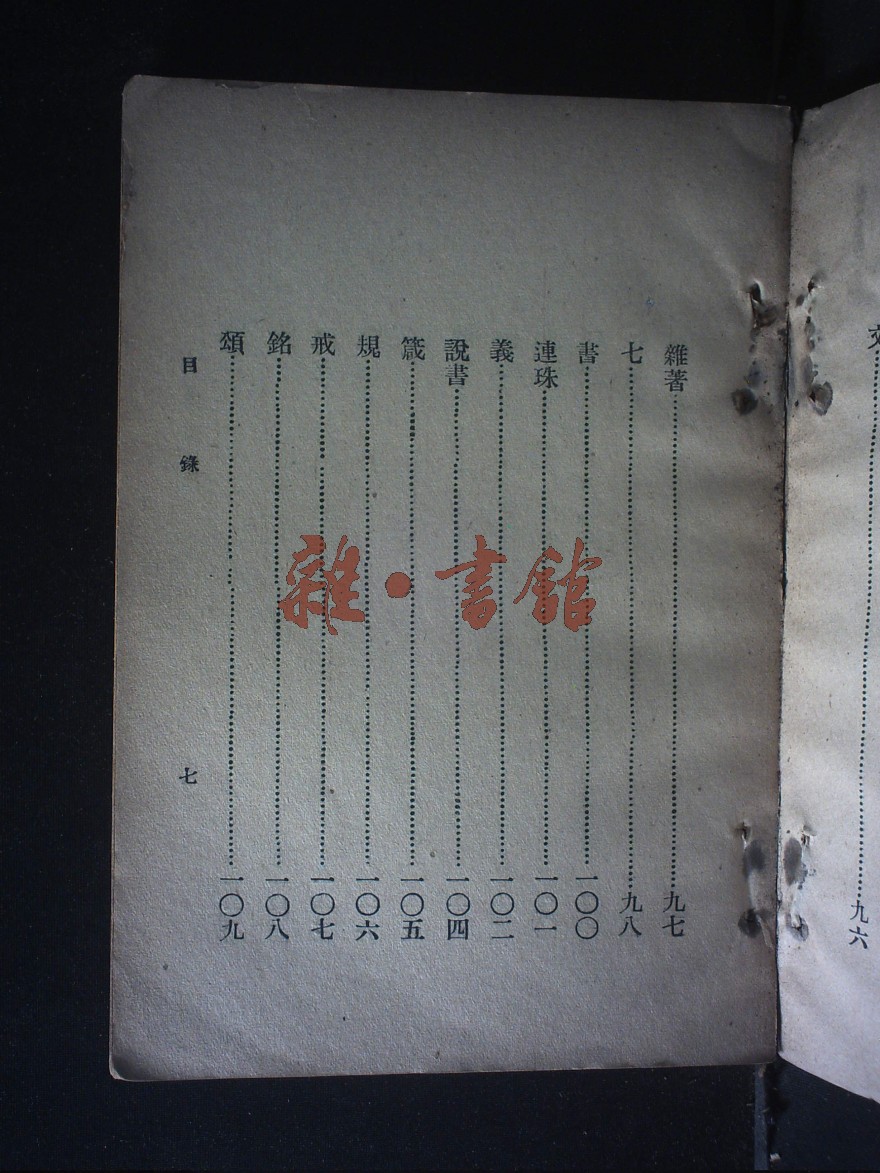 文……九六
雜著……九七
七……九八
書……一〇〇
連珠……一〇一
義……一〇二
說書……一〇四
箴……一〇五
規……一〇六
戒……一〇七
銘……一〇八
頌……一〇九
目錄 七
雜·書館